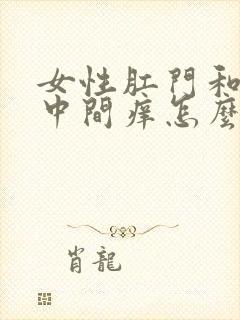 女性肛門和
中間痒怎麼
肖龍